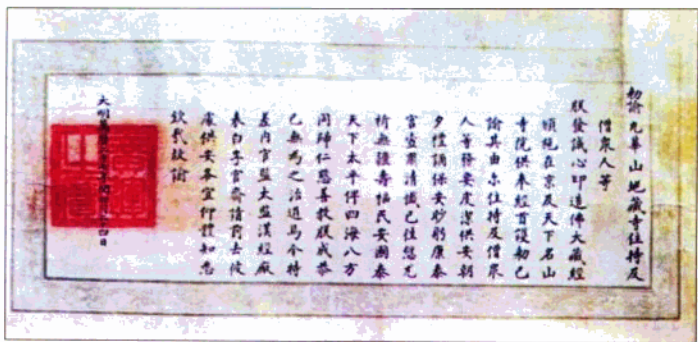 勅諭九華山地藏寺住持及
僧衆人等
朕發誠心印造佛大藏經
頒施在京及天下名山
寺院供奉經首護勅已
諭其由尔住持及僧衆
人等務要虔潔供安朝
夕禮誦保安眇躬康泰
宮壼肅清懺已往愆尤
祈無疆壽福民安國泰
天下太平俾四海八方
同歸仁慈善教朕成恭
已無為之治道焉今特
差內官監太監漢經廠
表白李官齋請前去彼
處供安各宜仰體知悉
欽哉故諭
大明萬曆年閏四日